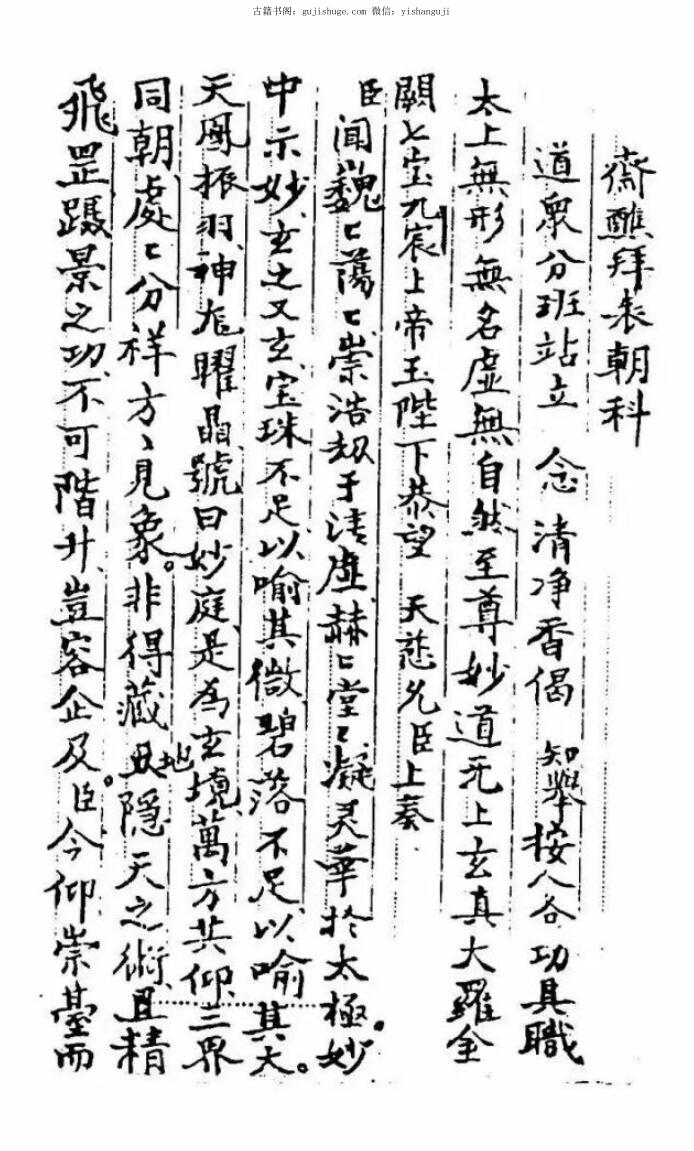 古籍书阁：gujishuge.com 微信：yishanguji
斋醮拜表朝科
道衆分班站立　念　清净香偈　知舉按八各功具職
太上無形無名虛無自然至尊妙道无上玄真大羅金
闕七宝九宸上帝玉陛下恭望　天慈允臣上奏
臣聞巍〻蕩〻崇浩劫于清虛赫〻堂〻凝灵華於太極。妙
中示妙玄之又玄宝珠不足以喻其微碧落不足以喻其大。
天鳳振羽神尨曜晶號曰妙庭是為玄境萬方共仰三界
同朝處〻分祥方〻見象。非得藏地隱天之術且精
飛罡躡景之功不可階升豈容企及。臣今仰崇臺而